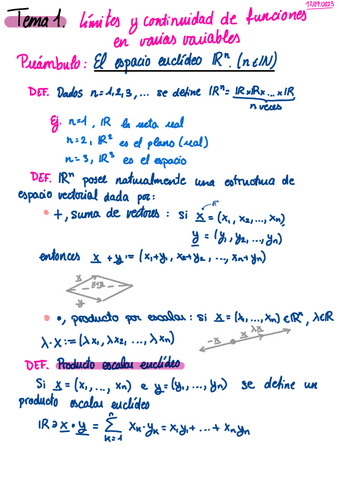 12/09/2023
Tema 1. Límites y continuidad de funciones
en varias variables
Preámbulo: El espacio euclídeo ℝⁿ. (n∈ℕ)
DEF. Dados n=1,2,3,... se define ℝⁿ = ℝxℝx...xℝ
n veces
Ej. n=1, ℝ la recta real
n=2, ℝ² es el plano (real)
n=3, ℝ³ es el espacio
DEF. ℝⁿ posee naturalmente una estructura de
espacio vectorial dada por:
• +, suma de vectores: si x = (x₁, x₂, ..., xₙ)
y = (y₁, y₂, ..., yₙ)
entonces x + y := (x₁+y₁, x₂+y₂, ..., xₙ+yₙ)
x x+y y
• •, producto por escalar: si x = (x₁, ..., xₙ) ∈ℝⁿ, λ∈ℝ
λ·x := (λx₁, λx₂, ..., λxₙ)
-x x λx
DEF. Producto escalar euclídeo
Si x = (x₁, ..., xₙ) e y = (y₁, ..., yₙ) se define un
producto escalar euclídeo
ℝ∋ x • y = ∑ₖ₌₁ⁿ xₖ·yₖ = x₁y₁ + ... + xₙyₙ